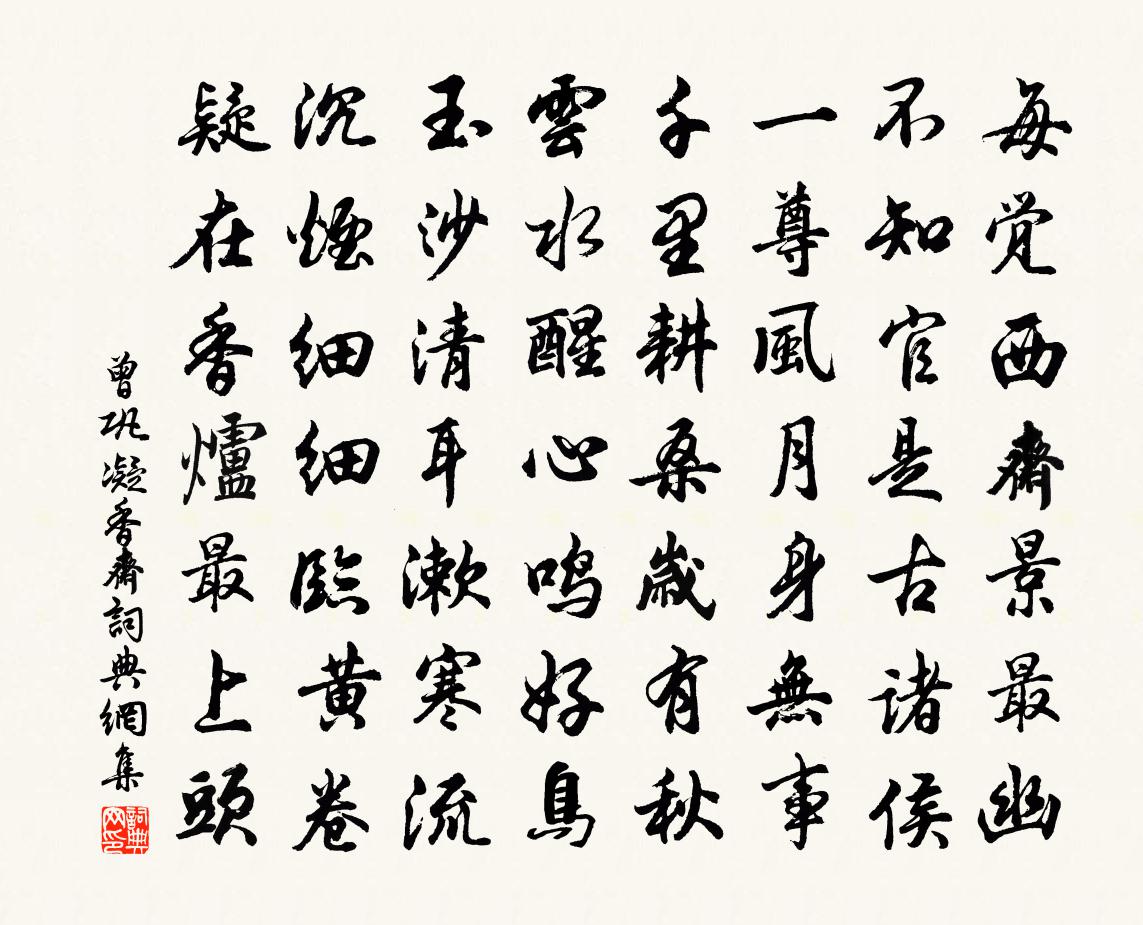 每觉西齋景最幽
不知官是古諸侯
一尊風月身無事
千里耕桑歲有秋
雲水醒心鸣好鳥
玉沙清耳漱寒流
沉煙细细臨黄卷
疑在香爐最上頭
曾巩凝香齋詞典網集
詞典網印